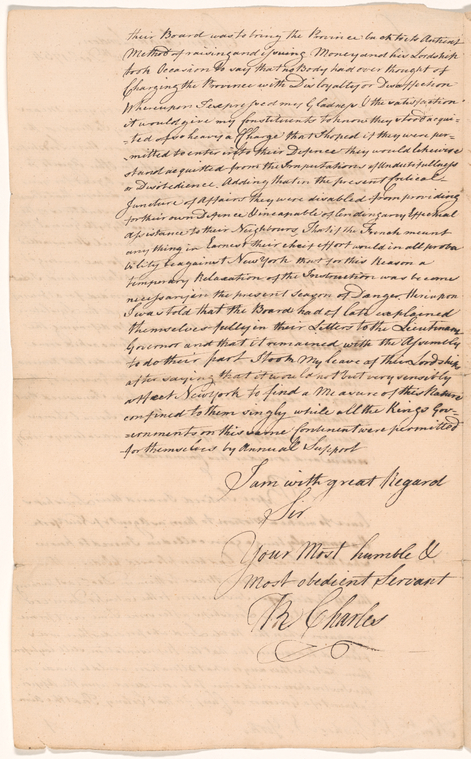 their Board was to bring the Province back to its Antient
Method of raising and issuing Money and his Lordship
took Occasion to say that no Body had ever thought of
Charging the Province with Disloyalty or Disaffection
Whereupon I expressed my Gladness & the satisfaction
it would give my Constituents to know they stood acquit-
-ted of so heavy a Charge that I hoped if they were per-
-mitted to enter into their Defence they would likewise
stand acquitted from the Imputations of Undutifullness
or Disobedience. Adding that in the present Critical
Juncture of Affairs they were disabled from providing
for their own Defence & incapable of lending any Effectual
Assistance to their Neighbours, That if the French meant
any thing in Earnest their chief effort would in all proba
bility be against New York that for this Reason a
temporary Relaxation of the Instruction was become
necessary in the present Season of Danger. Hereupon
I was told that the Board had of late explained
themselves fully in their Letters to the Lieutenant
Governor and that it remained with the Assembly
to do their part I took My leave of his Lordship
after saying that it would not but very sensibly
affect New York to find a Measure of this Nature
confined to them singly while all the Kings Gov-
-ernments on this same Continent were permitted
for themselves by Annual Support
I am with great Regard
Sir
Your Most humble &
most obedient Servant
R Charles